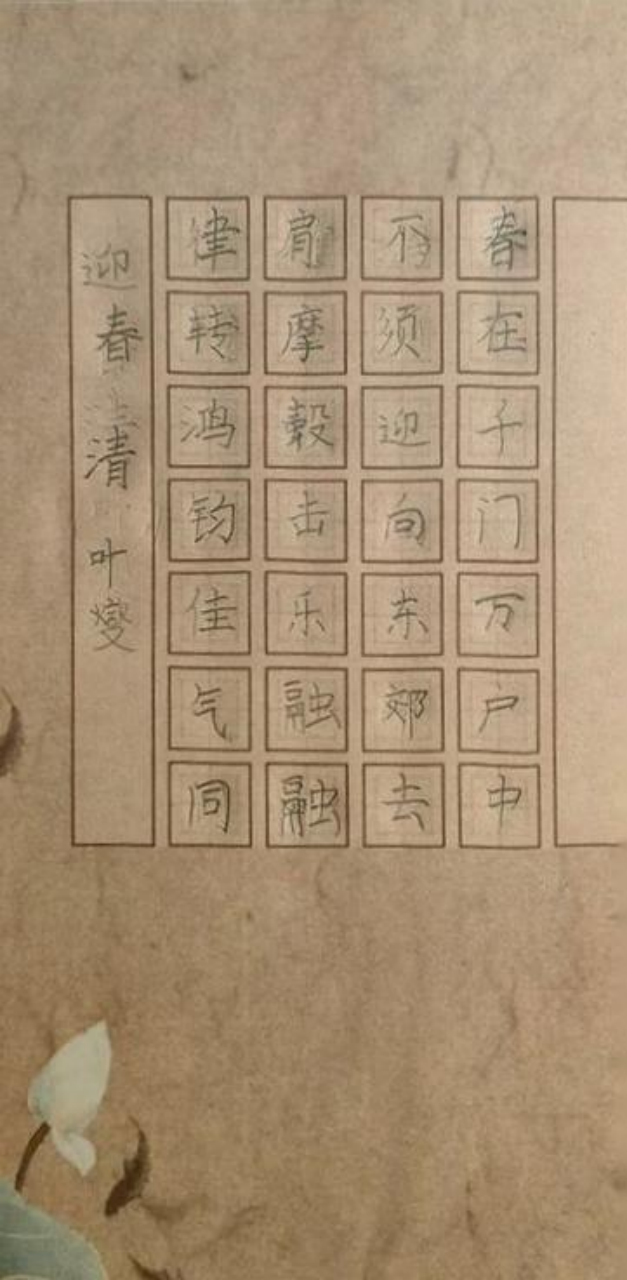 迎春 清 叶燮
律转鸿钧佳气同
肩摩毂击乐融融
不须迎向东郊去
春在千门万户中